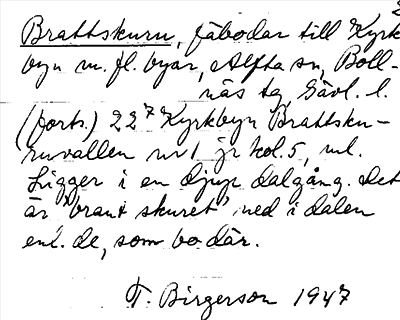 Brattskuru, fäbodar till Kyrk
byn m. fl. byar, Alfta sn, Boll-
näs tg, Gävl. l.
(forts.) 22⁷ Kyrkbyn Brattsku-
ruvallen nr 1 jr kol. 5, ml.
Ligger i en djup dalgång. Det
är 'brant skuret' ned i dalen
enl. de, som bo där.
T. Birgerson 1947